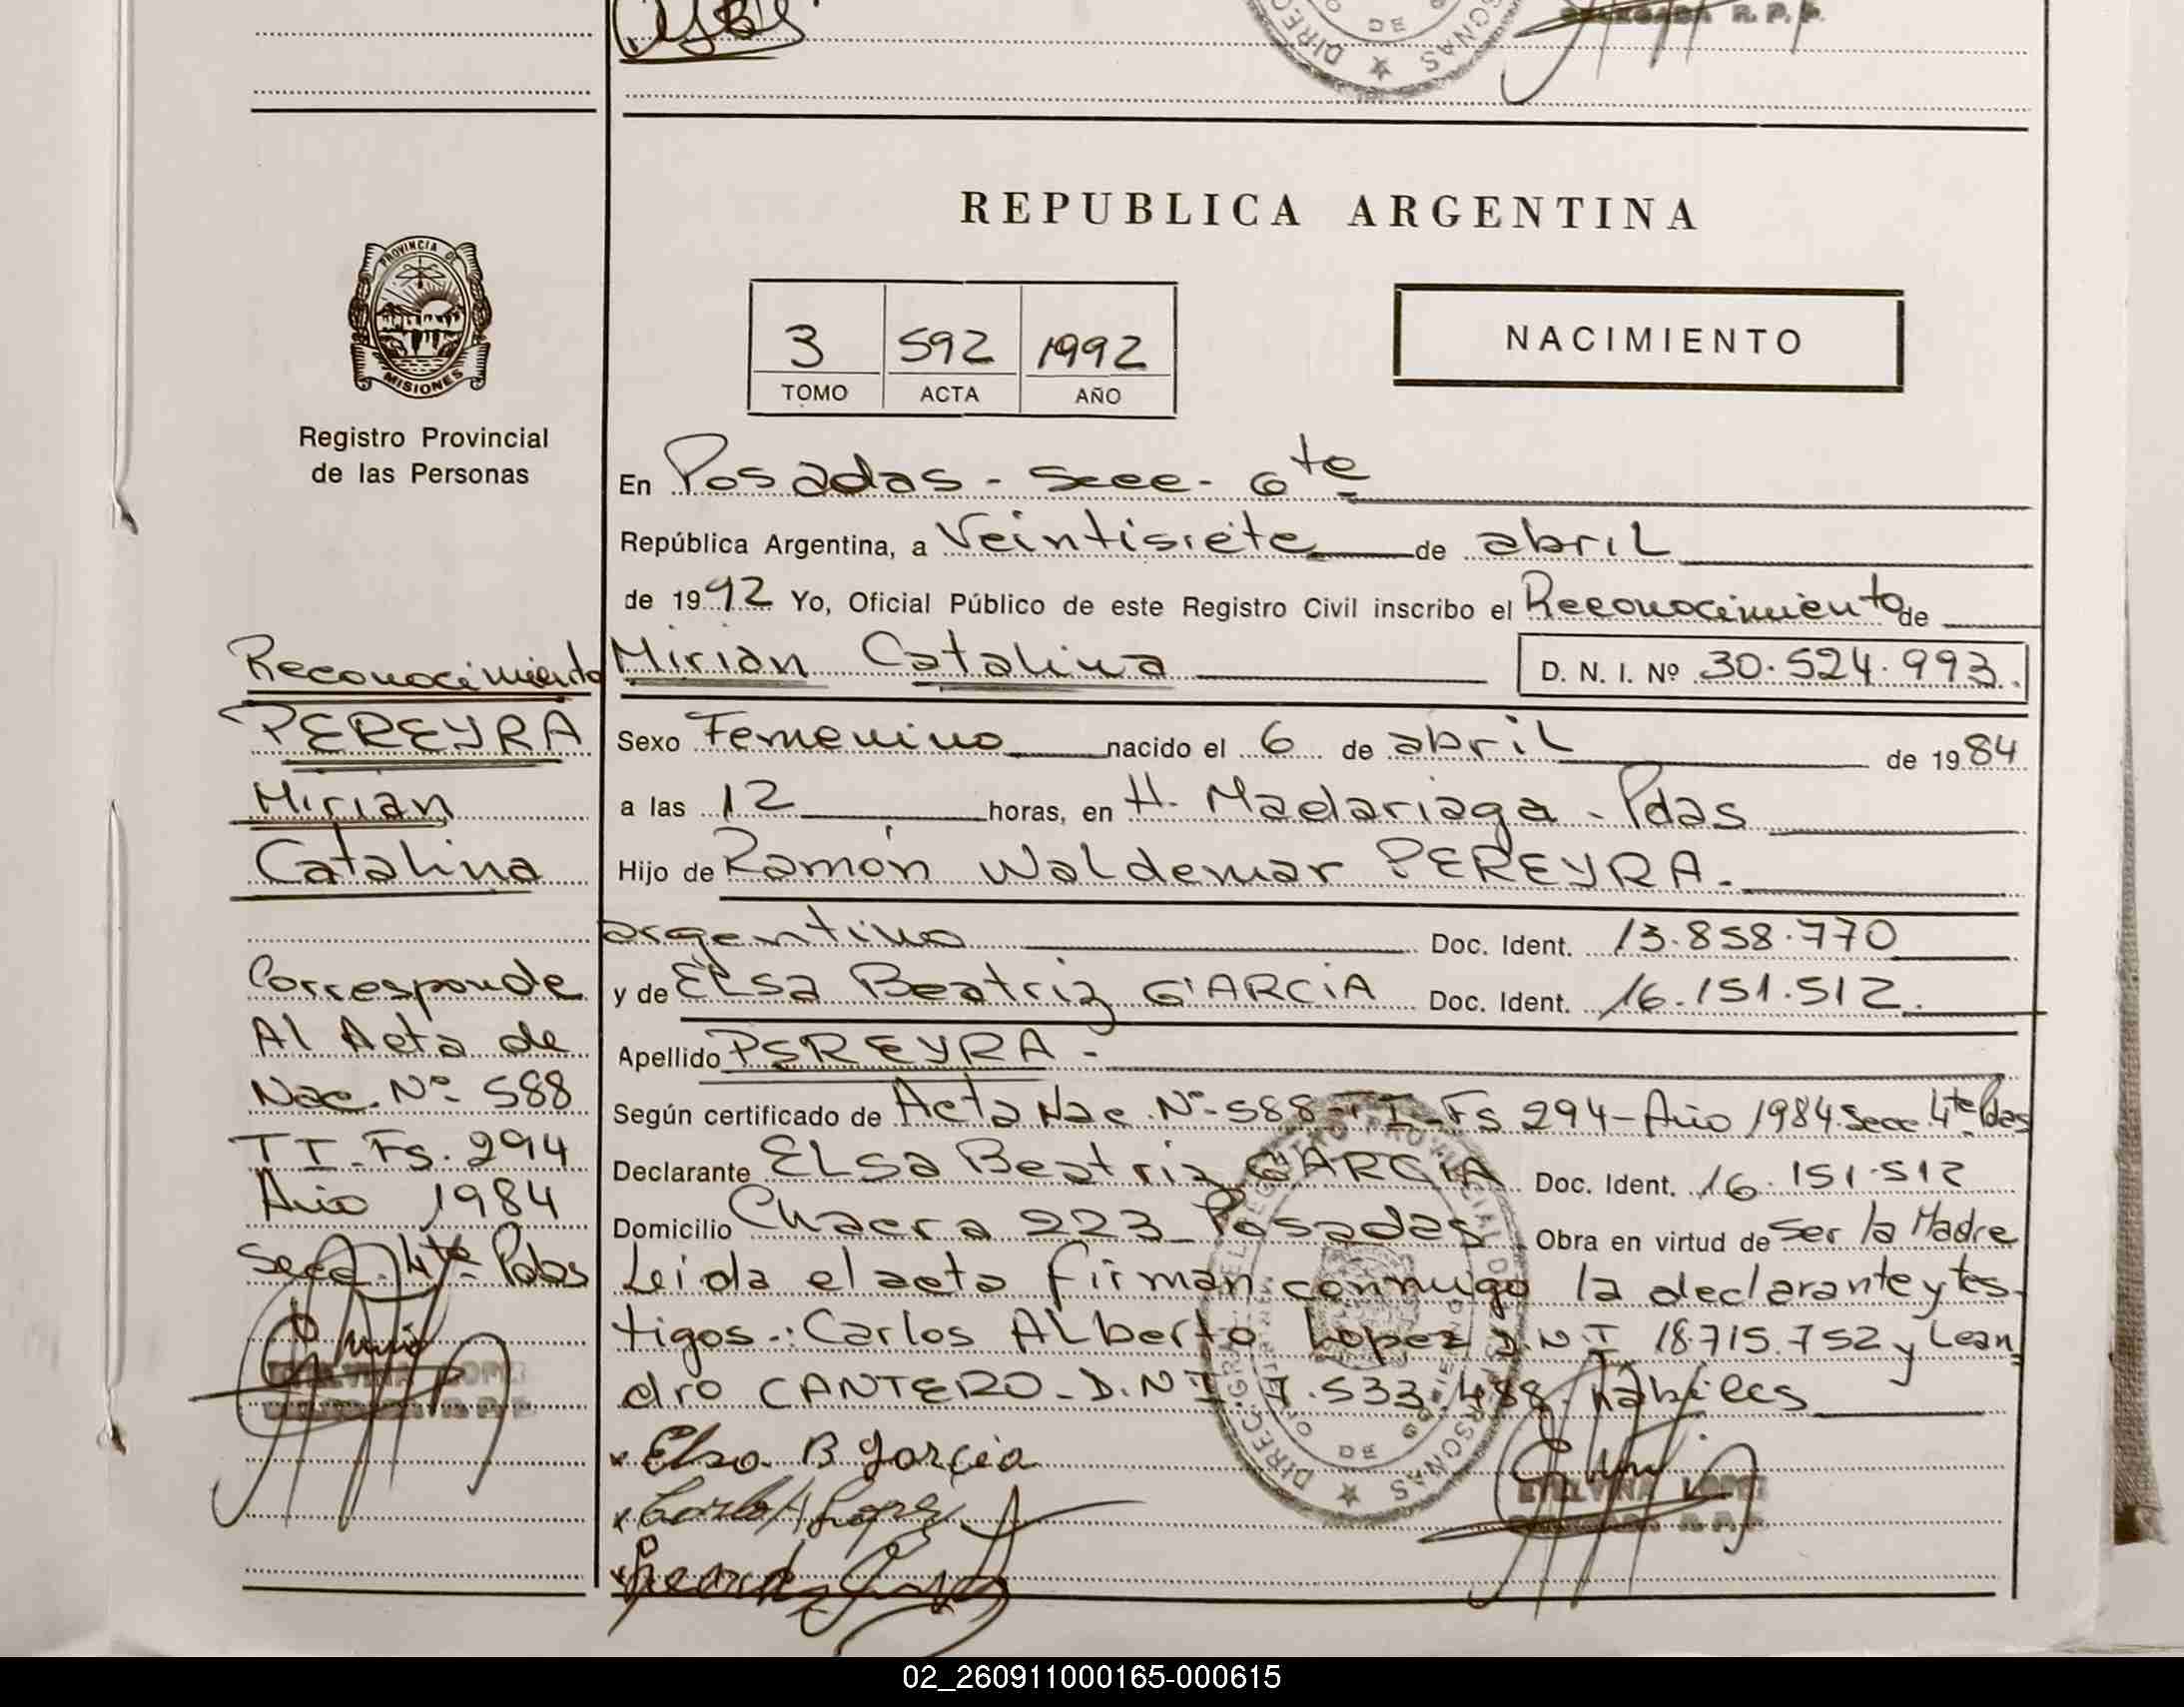 DELEGADA R. P. P.
REPUBLICA ARGENTINA
PROVINCIA DE
MISIONES
3 592 1992
TOMO ACTA AÑO
NACIMIENTO
Registro Provincial
de las Personas
En Posadas - Secc - 6te
República Argentina, a Veintisiete de abril
de 1992 Yo, Oficial Público de este Registro Civil inscribo el Reconocimiento de
Mirian Catalina D. N. I. Nº 30.524.993.
Sexo Femenino nacido el 6 de abril de 1984
a las 12 horas, en H. Madariaga - Pdas
Hijo de Ramón Waldemar PEREYRA.
argentino Doc. Ident. 13.858.770
y de ELsa Beatriz GARCIA Doc. Ident. 16.151.512.
Apellido PEREYRA -
Según certificado de Acta Nac. Nº 588 - T I - Fs 294 - Año 1984 Secc 4te Pdas
Declarante ELsa Beatriz GARCIA Doc. Ident. 16.151.512
Domicilio Chacra 223 Posadas Obra en virtud de ser la Madre
Leida el acta firman conmigo la declarante y tes-
tigos: Carlos ALberto Lopez D.N.I 18.715.752 y Lean
dro CANTERO - D.N I 7.533.488 habiles
x Elsa B Garcia
x Carlos A Lopez
Reconocimiento
PEREYRA
Mirian
Catalina
Corresponde
Al Acta de
Nac. Nº 588
T I - Fs. 294
Año 1984
Secc. 4te Pdas
02_260911000165-000615